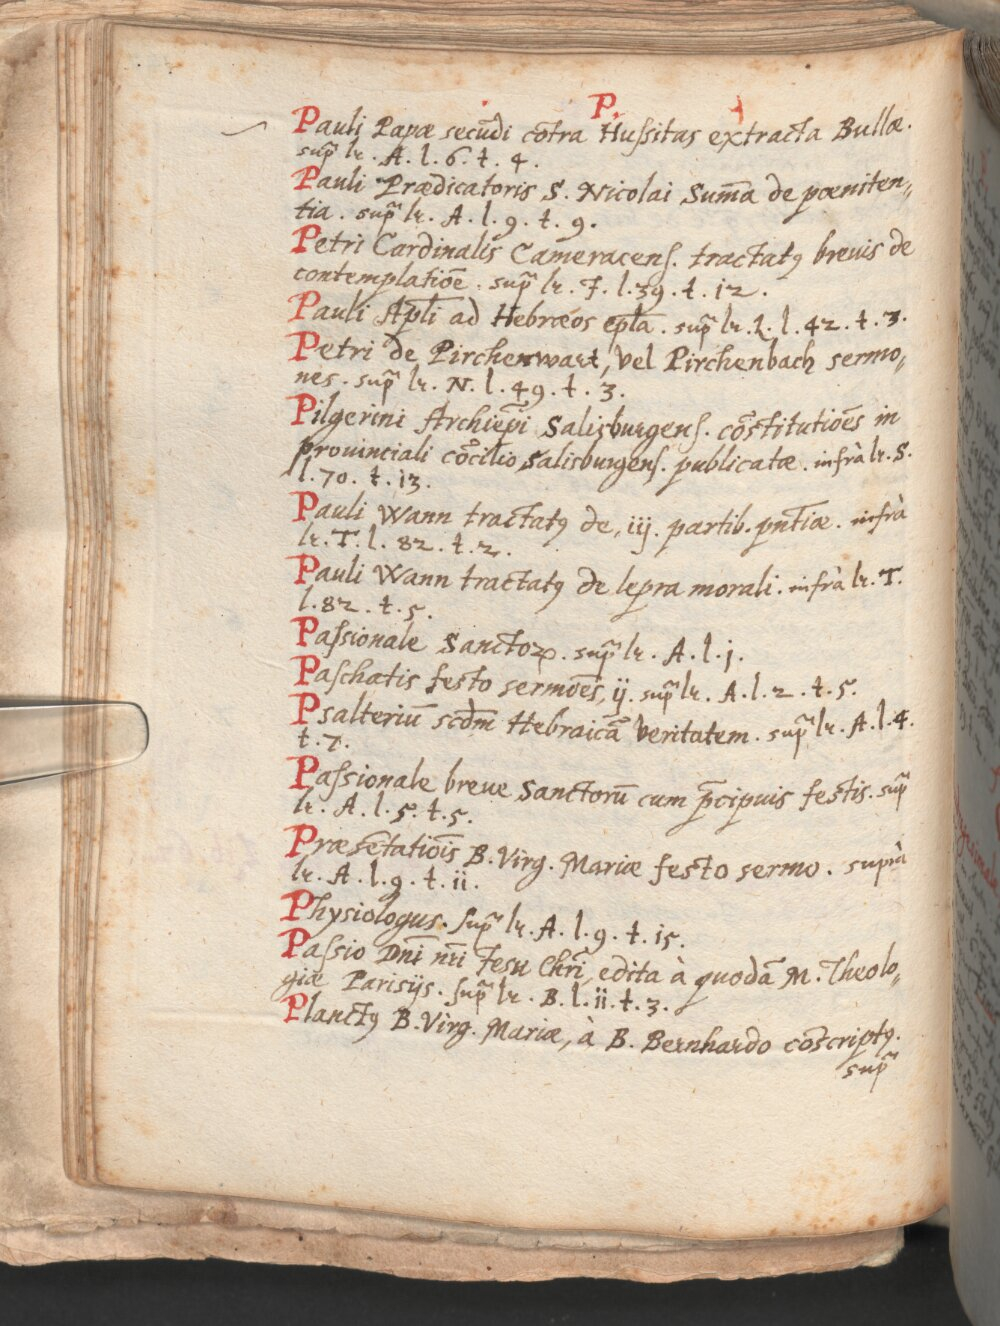 P.
Pauli Papæ secūdi cōtra Hussitas extracta Bullæ.
sup̃ lr. A. l. 6. t. 4.
Pauli Prædicatoris S. Nicolai Sum̄a de pœniten„
tia. sup̃ lr. A. l. 9. t. 9.
Petri Cardinalis Cameracens. tractatꝯ breuis de
contemplatiōe. sup̃ lr. F. l. 39. t. 12.
Pauli Apl̄i ad Hebræos ep̄la. sup̃ lr. L. l. 42. t. 3.
Petri de Pirchenwart, vel Pirchenbach sermo„
nes. sup̃ lr. N. l. 49. t. 3.
Pilgerini Archiep̄i Salisburgens. cōstitutiōes in
prouinciali cōcilio Salisburgens. publicatæ. infrà lr. S.
l. 70. t. 13.
Pauli Wann tractatꝯ de, iij. partib. pn̄tiæ. infrà
lr. T. l. 82. t. 2.
Pauli Wann tractatꝯ de lepra morali. infrà lr. T.
l. 82. t. 5.
Passionale Sanctoꝝ. sup̃ lr. A. l. j.
Paschatis festo sermōes, ij. sup̃ lr. A. l. 2. t. 5.
Psalteriū scdm̄ Hebraicā veritatem. sup̃ lr. A. l. 4.
t. 7.
Passionale breue Sanctorū cum p̄cipuis festis. sup̃
lr. A. l. 5. t. 5.
Præsētatiōis B. Virg. Mariæ festo sermo. suprà
lr. A. l. 9. t. ii.
Physiologus. sup̃ lr. A. l. 9. t. 15.
Passio Dn̄i nr̄i Jesu Chr̄i edita à quodā M. Theolo„
giæ Parisijs. sup̃ lr. B. l. ii. t. 3.
Planctꝯ B. Virg. Mariæ, à B. Bernhardo cōscriptꝯ.
sup̃